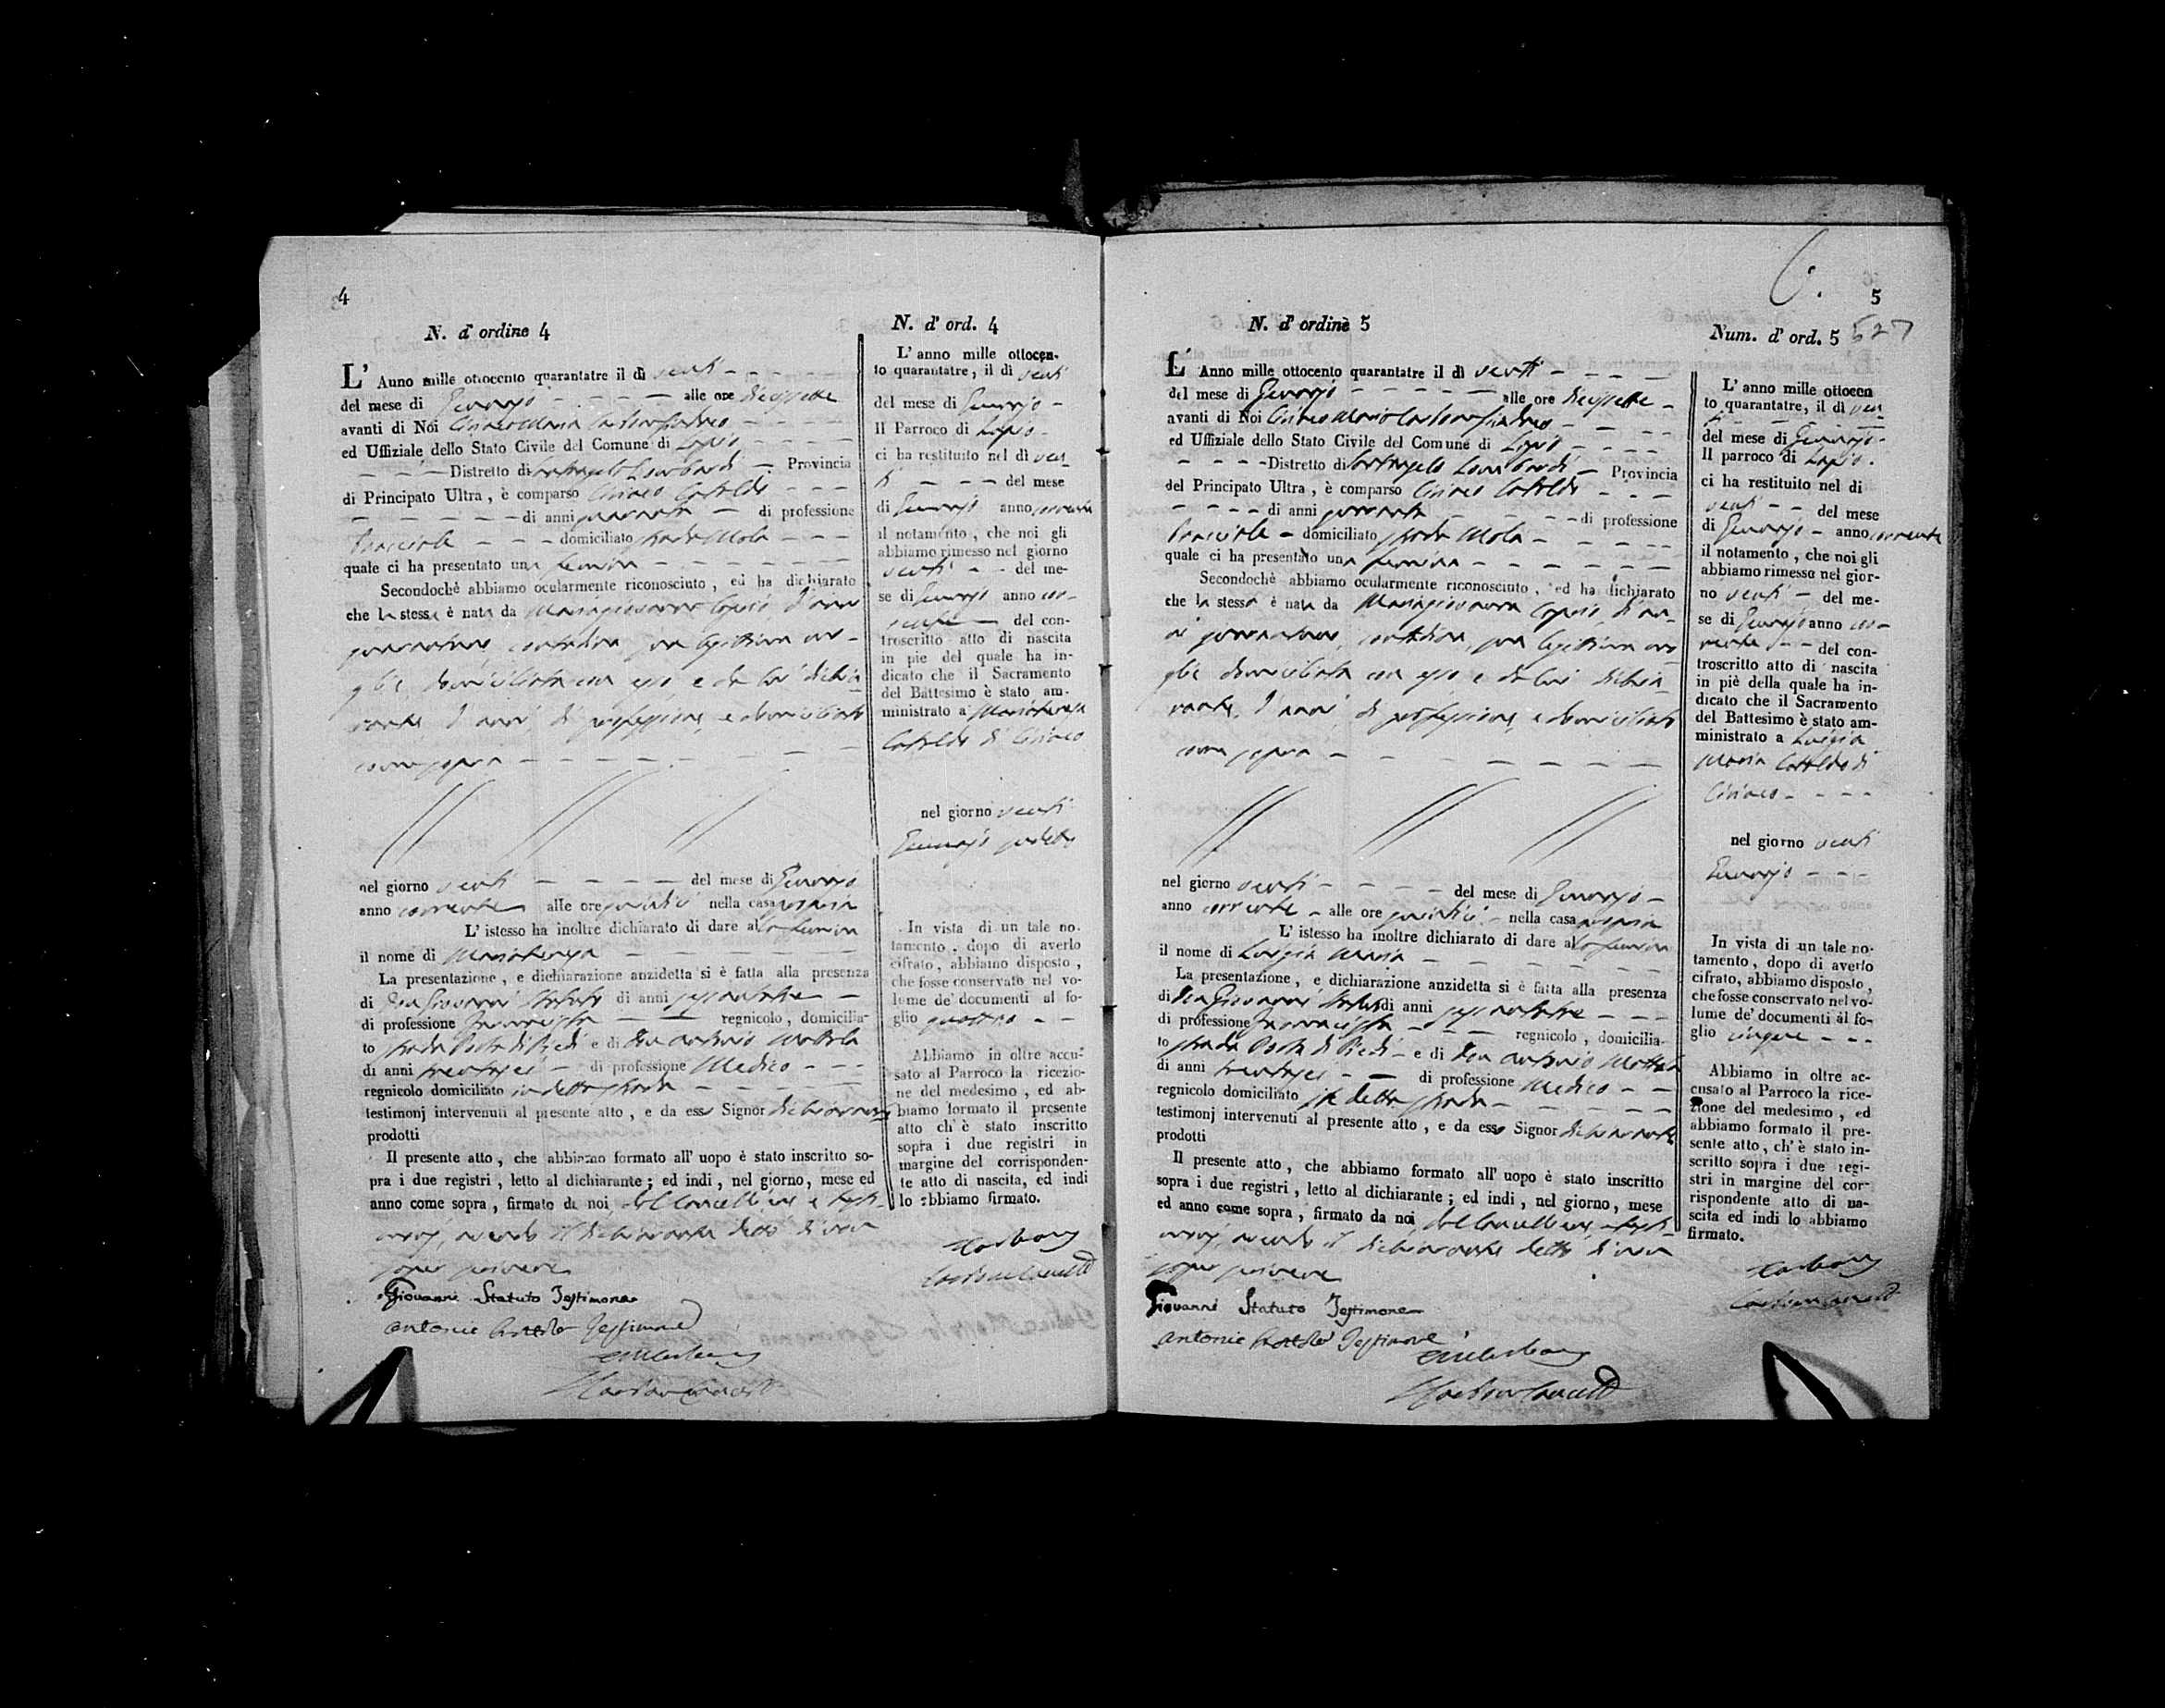 4
N. d' ordine 4
L' Anno mille ottocento quarantatre il dì venti
del mese di Gennajo alle ore diecisette
avanti di Noi Ciriaco Maria
ed Uffiziale dello Stato Civile del Comune di Lapio
Distretto di Santangelo Lombardi Provincia
di Principato Ultra, è comparso Ciriaco Cataldo
di anni quaranta di professione
bracciale domiciliato strada Mola
quale ci ha presentato una femina
Secondochè abbiamo ocularmente riconosciuto, ed ha dichiarato
che la stessa è nata da Mariagiovanna d'anni
contadina sua legittima mo-
glie domiciliata con esso e da lui dichia-
rante, d'anni, di professione, e domiciliato
come sopra
nel giorno venti del mese di Gennajo
anno corrente alle ore quindici nella casa propria
L' istesso ha inoltre dichiarato di dare alla femina
il nome di Mariateresa
La presentazione, e dichiarazione anzidetta si è fatta alla presenza
di Don Giovanni Statuto di anni
di professione regnicolo, domicilia-
to strada Porta di Piedi e di Don Antonio Mottola
di anni trentasei di professione Medico
regnicolo domiciliato in detta strada
testimonj intervenuti al presente atto, e da esso Signor dichiarante
prodotti
Il presente atto, che abbiamo formato all' uopo è stato inscritto so-
pra i due registri, letto al dichiarante; ed indi, nel giorno, mese ed
anno come sopra, firmato da noi, dal Cancelliere e testi-
monj, avendo il dichiarante detto di non
saper scrivere
Giovanni Statuto Testimone
Antonio Mottola Testimone
N. d' ord. 4
L' anno mille ottocen-
to quarantatre, il dì venti
del mese di Gennajo
Il Parroco di Lapio
ci ha restituito nel dì ven-
ti del mese
di Gennajo anno corrente
il notamento, che noi gli
abbiamo rimesso nel giorno
venti del me-
se di Gennajo anno cor-
rente del con-
troscritto atto di nascita
in pie del quale ha in-
dicato che il Sacramento
del Battesimo è stato am-
ministrato a Mariateresa
Cataldo di Ciriaco
nel giorno venti
Gennajo
In vista di un tale no-
tamento, dopo di averlo
cifrato, abbiamo disposto,
che fosse conservato nel vo-
lume de' documenti al fo-
glio quattro
Abbiamo in oltre accu-
sato al Parroco la ricezio-
ne del medesimo, ed ab-
biamo formato il presente
atto ch' è stato inscritto
sopra i due registri in
margine del corrisponden-
te atto di nascita, ed indi
lo abbiamo firmato.
6.
5
N. d' ordine 5
L' Anno mille ottocento quarantatre il dì venti
del mese di Gennajo alle ore diecisette
avanti di Noi Ciriaco Maria
ed Uffiziale dello Stato Civile del Comune di Lapio
Distretto di Santangelo Lombardi Provincia
del Principato Ultra, è comparso Ciriaco Cataldo
di anni quaranta di professione
bracciale domiciliato strada Mola
quale ci ha presentato una femina
Secondochè abbiamo ocularmente riconosciuto, ed ha dichiarato
che la stessa è nata da Mariagiovanna di an-
ni contadina, sua legittima mo-
glie domiciliata con esso e da lui dichia-
rante, d'anni di professione, e domiciliato
come sopra
nel giorno venti del mese di Gennajo
anno corrente alle ore quindici nella casa propria
L' istesso ha inoltre dichiarato di dare alla femina
il nome di Luigia Maria
La presentazione, e dichiarazione anzidetta si è fatta alla presenza
di Don Giovanni Statuto di anni
di professione regnicolo, domicilia-
to strada Porta di Piedi e di Don Antonio Mottola
di anni trentasei di professione Medico
regnicolo domiciliato in detta strada
testimonj intervenuti al presente atto, e da esso Signor dichiarante
prodotti
Il presente atto, che abbiamo formato all' uopo è stato inscritto
sopra i due registri, letto al dichiarante; ed indi, nel giorno, mese
ed anno come sopra, firmato da noi, dal Cancelliere, e testi-
monj, avendo il dichiarante detto di non
saper scrivere
Giovanni Statuto Testimone
Antonio Mottola Testimone
Num. d' ord. 5 527
L' anno mille ottocen
to quarantatre, il dì ven-
ti
del mese di Gennajo
Il parroco di Lapio.
ci ha restituito nel di
venti del mese
di Gennajo anno corrente
il notamento, che noi gli
abbiamo rimesso nel gior-
no venti del me-
se di Gennajo anno cor-
rente del con-
troscritto atto di nascita
in piè della quale ha in-
dicato che il Sacramento
del Battesimo è stato am-
ministrato a Luigia
Maria Cataldo di
Ciriaco
nel giorno venti
Gennajo
In vista di un tale no-
tamento, dopo di averlo
cifrato, abbiamo disposto,
che fosse conservato nel vo-
lume de' documenti al fo-
glio cinque
Abbiamo in oltre ac-
cusato al Parroco la rice-
zione del medesimo, ed
abbiamo formato il pre-
sente atto, ch' è stato in-
scritto sopra i due regi-
stri in margine del cor-
rispondente atto di na-
scita ed indi lo abbiamo
firmato.